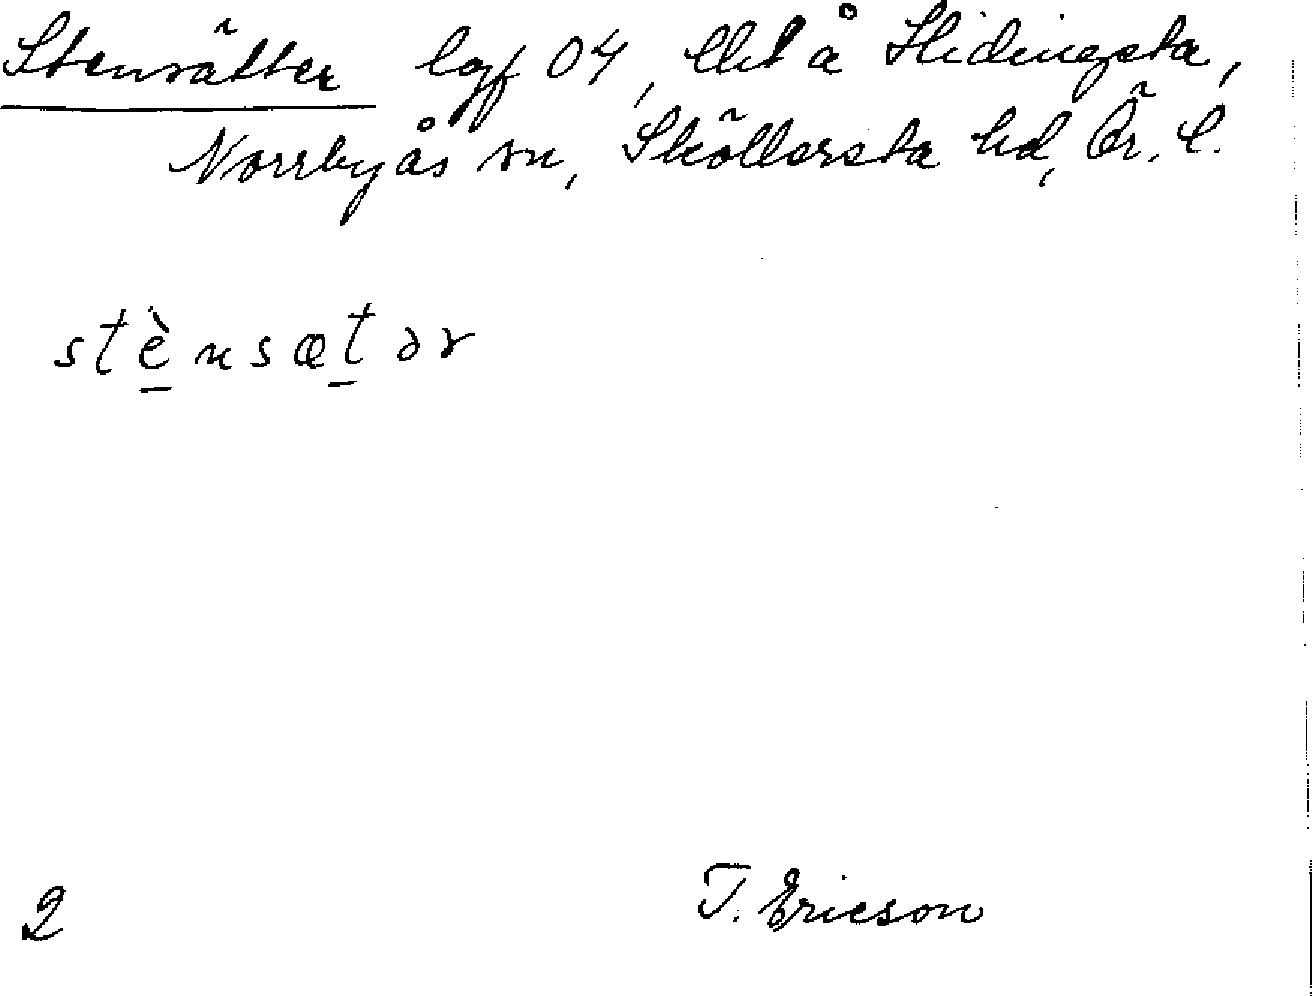 Stensätter lgf 04, lht å Hidingsta,
Norrbyås sn, Sköllersta hd, Ör. l.
stènsætər
2
T. Ericson